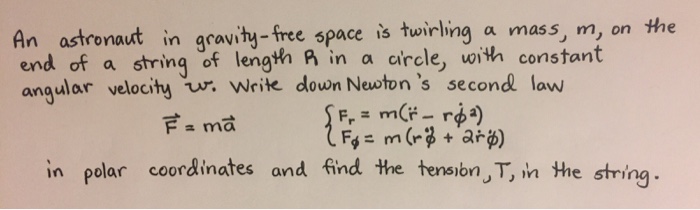 An astronaut in gravity-free space is twirling a mass, m, on the
end of a string of length R in a circle, with constant
angular velocity w. Write down Newton's second law
F⃗ = ma⃗ { Fᵣ = m(r̈ - rφ̇²)
{ Fφ = m(rφ̈ + 2ṙφ̇)
in polar coordinates and find the tension, T, in the string.